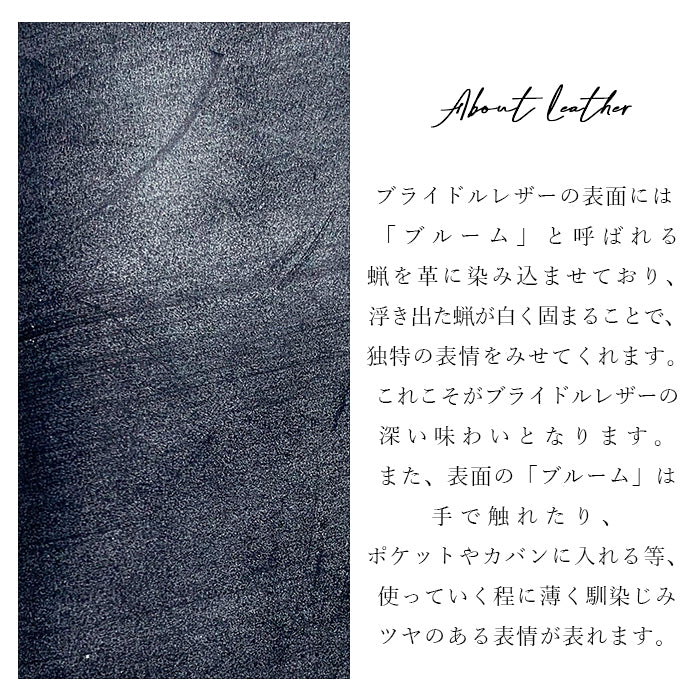 About Leather
ブライドルレザーの表面には
「ブルーム」と呼ばれる
蝋を革に染み込ませており、
浮き出た蝋が白く固まることで、
独特の表情をみせてくれます。
これこそがブライドルレザーの
深い味わいとなります。
また、表面の「ブルーム」は
手で触れたり、
ポケットやカバンに入れる等、
使っていく程に薄く馴染じみ
ツヤのある表情が表れます。